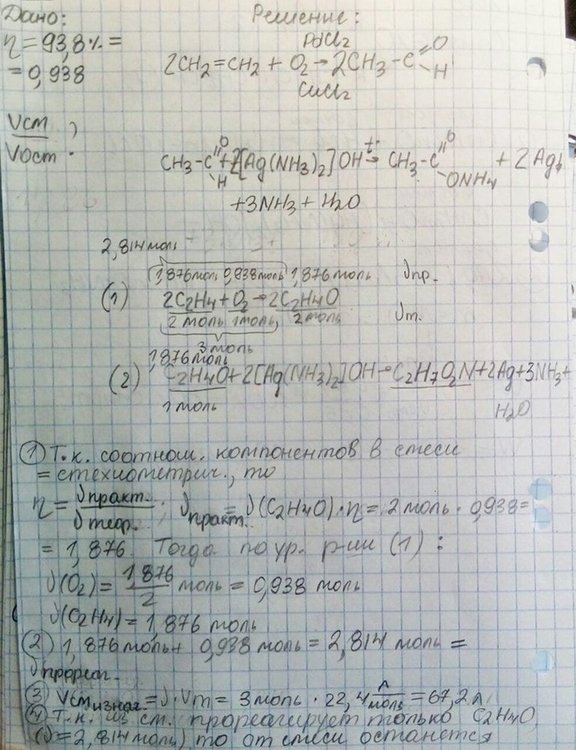 Дано:
Решение:
η = 93,8% =
= 0,938
PdCl2
2CH2=CH2 + O2 → 2CH3-C
O
H
CuCl2
Vсм
Vост.
?
O
CH3-C + 2[Ag(NH3)2]OH t→ CH3-C
H
O
ONH4
+ 2Ag↓
+3NH3 + H2O
2,814 моль
1,876 моль 0,938 моль 1,876 моль νпр.
(1) 2C2H4 + O2 → 2C2H4O
2 моль 1 моль, 2 моль νт.
3 моль
1,876 моль
(2) C2H4O + 2[Ag(NH3)2]OH → C2H7O2N + 2Ag + 3NH3 +
1 моль
H2O
① Т.к. соотнош. компонентов в смеси
= стехиометрич., то
η = νпракт. / νтеор. ; νпракт. = ν(C2H4O)·η = 2 моль · 0,938 =
= 1,876. Тогда по ур. р-ии (1) :
ν(O2) = 1,876 / 2 моль = 0,938 моль
ν(C2H4) = 1,876 моль
② 1,876 моль + 0,938 моль = 2,814 моль =
νпрореаг.
③ Vсм изнач. = ν·Vm = 3 моль · 22,4 л/моль = 67,2 л
④ Т.к. из см. прореагирует только C2H4O,
(ν = 2,814 моль) то от смеси останется